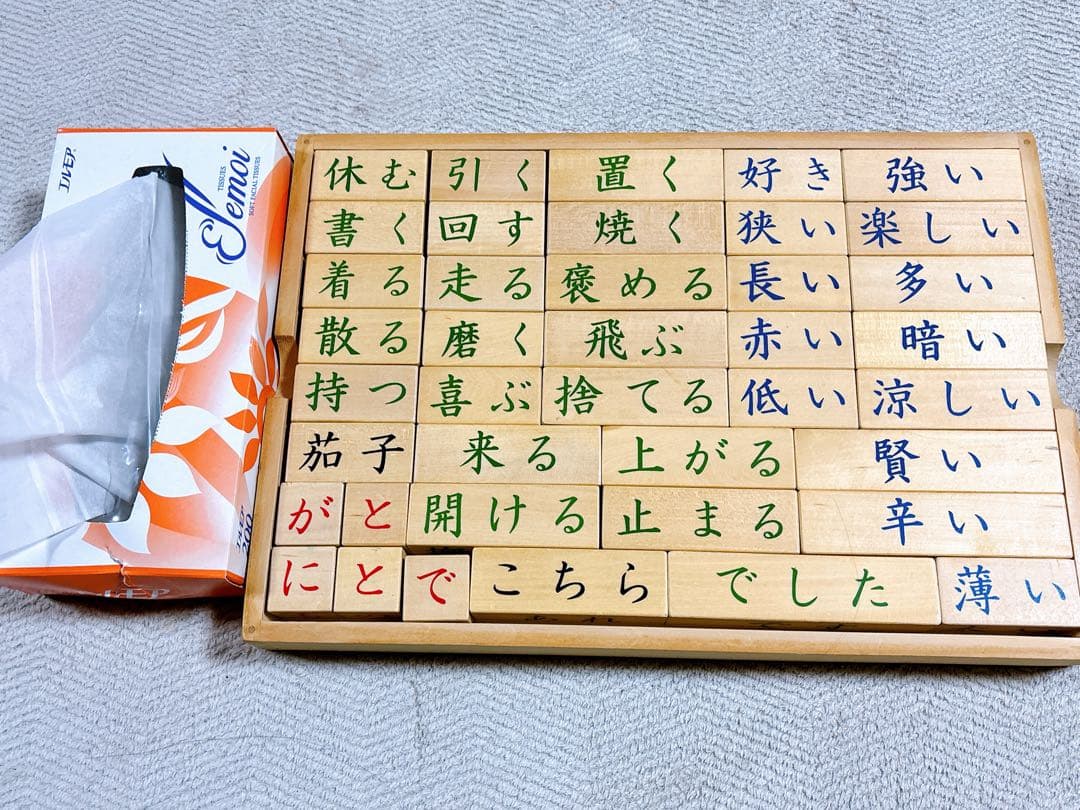 エルモア
Elemoi
TISSUES
SOFT FACIAL TISSUES
休む 引く 置く 好き 強い
書く 回す 焼く 狭い 楽しい
着る 走る 褒める 長い 多い
散る 磨く 飛ぶ 赤い 暗い
持つ 喜ぶ 捨てる 低い 涼しい
茄子 来る 上がる 賢い
が と 開ける 止まる 辛い
に と で こちら でした 薄い